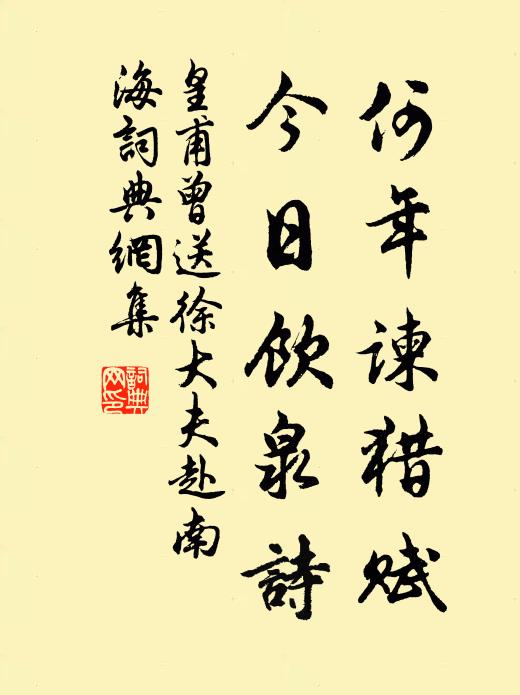 何年諫猎賦
今日飲泉詩
皇甫曾送徐大夫赴南
海詞典網集
詞典
网印